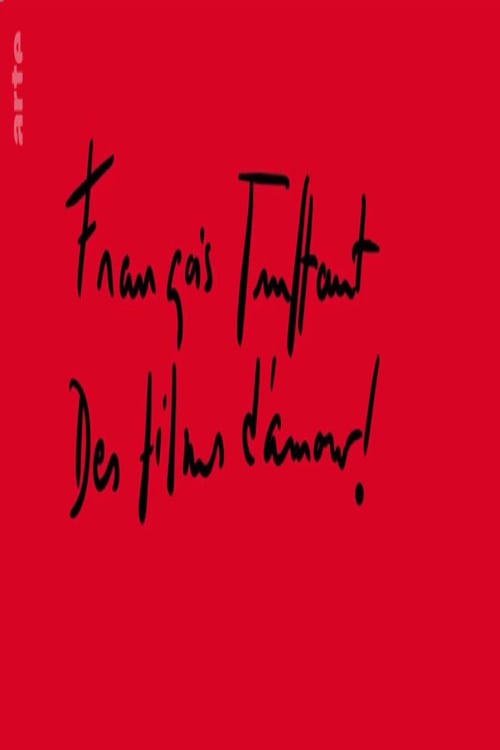 arte
François Truffaut
Des films d'amour!